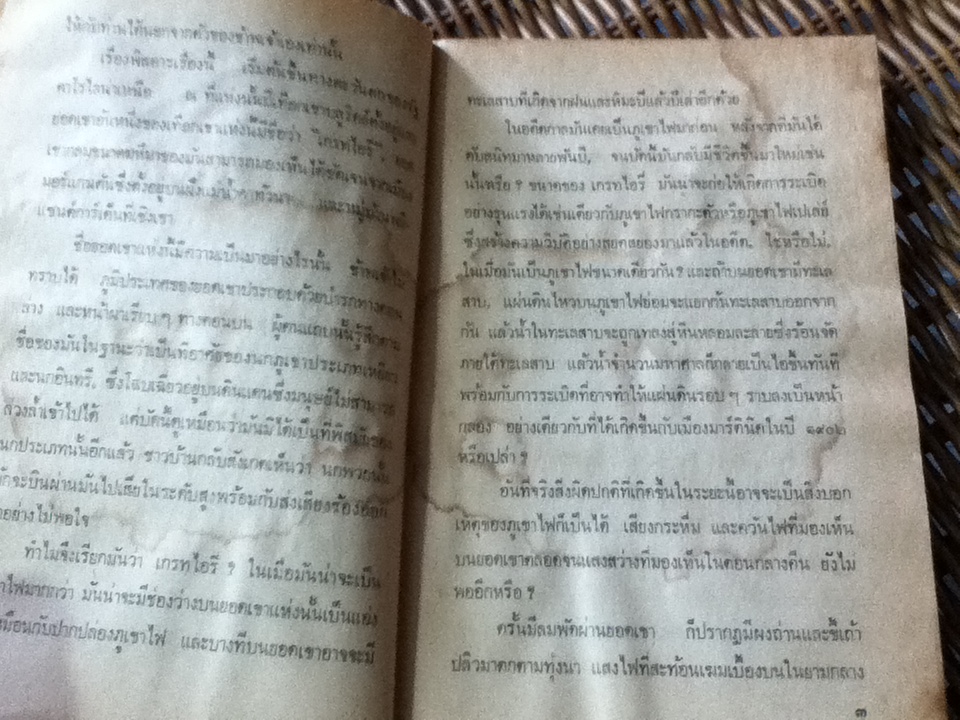 ให้กับท่านได้นอกจากตัวของข้าพเจ้าเองเท่านั้น
เรื่องพิสดารเรื่องนี้ เริ่มต้นขึ้นทางตะวันตกของรัฐ
คาโรไลนาเหนือ ณ ที่แห่งนั้นมีเทือกเขาบลูริดจ์ตั้งอยู่และ
ยอดเขาอันหนึ่งของเทือกเขาแห่งนั้นมีชื่อว่า "เกรทไอรี่" ยอด
เขากลมขนาดมหึมาของมันสามารถมองเห็นได้ชัดเจนจากเมือง
มอร์แกนตันซึ่งตั้งอยู่บนฝั่งแม่น้ำคาทัวนา และหมู่บ้านพลี
แซนต์การ์เด้นที่เชิงเขา
ชื่อยอดเขาแห่งนี้มีความเป็นมาอย่างไรนั้น ข้าพเจ้าไม่
ทราบได้ ภูมิประเทศของยอดเขาประกอบด้วยปากทางตอน
ล่าง และหน้าผาเรียบ ๆ ทางตอนบน ผู้คนแถบนั้นรู้สึกตาม
ชื่อของมันในฐานะว่าเป็นที่อาศัยของนกภูเขาประเภทเหยี่ยว
และนกอินทรี, ซึ่งโฉบเฉี่ยวอยู่บนดินแดนซึ่งมนุษย์ไม่สามารถ
ล่วงล้ำเข้าไปได้ แต่บัดนี้ดูเหมือนว่ามันมิได้เป็นที่พิสมัยของ
นกประเภทนั้นอีกแล้ว ชาวบ้านกลับสังเกตเห็นว่า นกพวกนั้น
มักจะบินผ่านมันไปเสียในระดับสูงพร้อมกับส่งเสียงร้องอ๊อก
อย่างไม่พอใจ
ทำไมจึงเรียกมันว่า เกรทไอรี่ ? ในเมื่อมันน่าจะเป็น
ไฟมากกว่า มันน่าจะมีช่องว่างบนยอดเขาแห่งนั้นเป็นแอ่ง
เหมือนกับปากปล่องภูเขาไฟ และบางทีบนยอดเขาอาจจะมี
ทะเลสาบที่เกิดจากฝนและหิมะปีแล้วปีเล่าอีกด้วย
ในอดีตกาลมันเคยเป็นภูเขาไฟมาก่อน หลังจากที่มันได้
ดับสนิทมาหลายพันปี, จนบัดนี้มันกลับมีชีวิตขึ้นมาใหม่เช่น
นั้นหรือ ? ขนาดของ เกรทไอรี่ มันน่าจะก่อให้เกิดการระเบิด
อย่างรุนแรงได้เช่นเดียวกับภูเขาไฟกรากะตัวหรือภูเขาไฟเปเล่ย์
ซึ่งสร้างความวิบัติอย่างสยดสยองมาแล้วในอดีต, ใช่หรือไม่,
ในเมื่อมันเป็นภูเขาไฟขนาดเดียวกัน ? และถ้าบนยอดเขามีทะเล
สาบ, แผ่นดินไหวบนภูเขาไฟย่อมจะแยกก้นทะเลสาบออกจาก
กัน แล้วน้ำในทะเลสาบจะถูกเทลงสู่หินหลอมละลายซึ่งร้อนจัด
ภายใต้ทะเลสาบ แล้วน้ำจำนวนมหาศาลก็กลายเป็นไอขึ้นทันที
พร้อมกับการระเบิดที่อาจทำให้แผ่นดินรอบ ๆ ราบลงเป็นหน้า
กลอง อย่างเดียวกับที่ได้เกิดขึ้นกับเมืองมาร์ตินิคในปี ๑๙๐๒
หรือเปล่า ?
อันที่จริงสิ่งผิดปกติที่เกิดขึ้นในระยะนี้อาจจะเป็นสิ่งบอก
เหตุของภูเขาไฟก็เป็นได้ เสียงกระหึ่ม และควันไฟที่มองเห็น
บนยอดเขาตลอดจนแสงสว่างที่มองเห็นในตอนกลางคืน ยังไม่
พออีกหรือ ?
ครั้นมีลมพัดผ่านยอดเขา ก็ปรากฏมีผงถ่านและขี้เถ้า
ปลิวมาตกตามทุ่งนา แสงไฟที่สะท้อนเมฆเบื้องบนในยามกลาง
๓